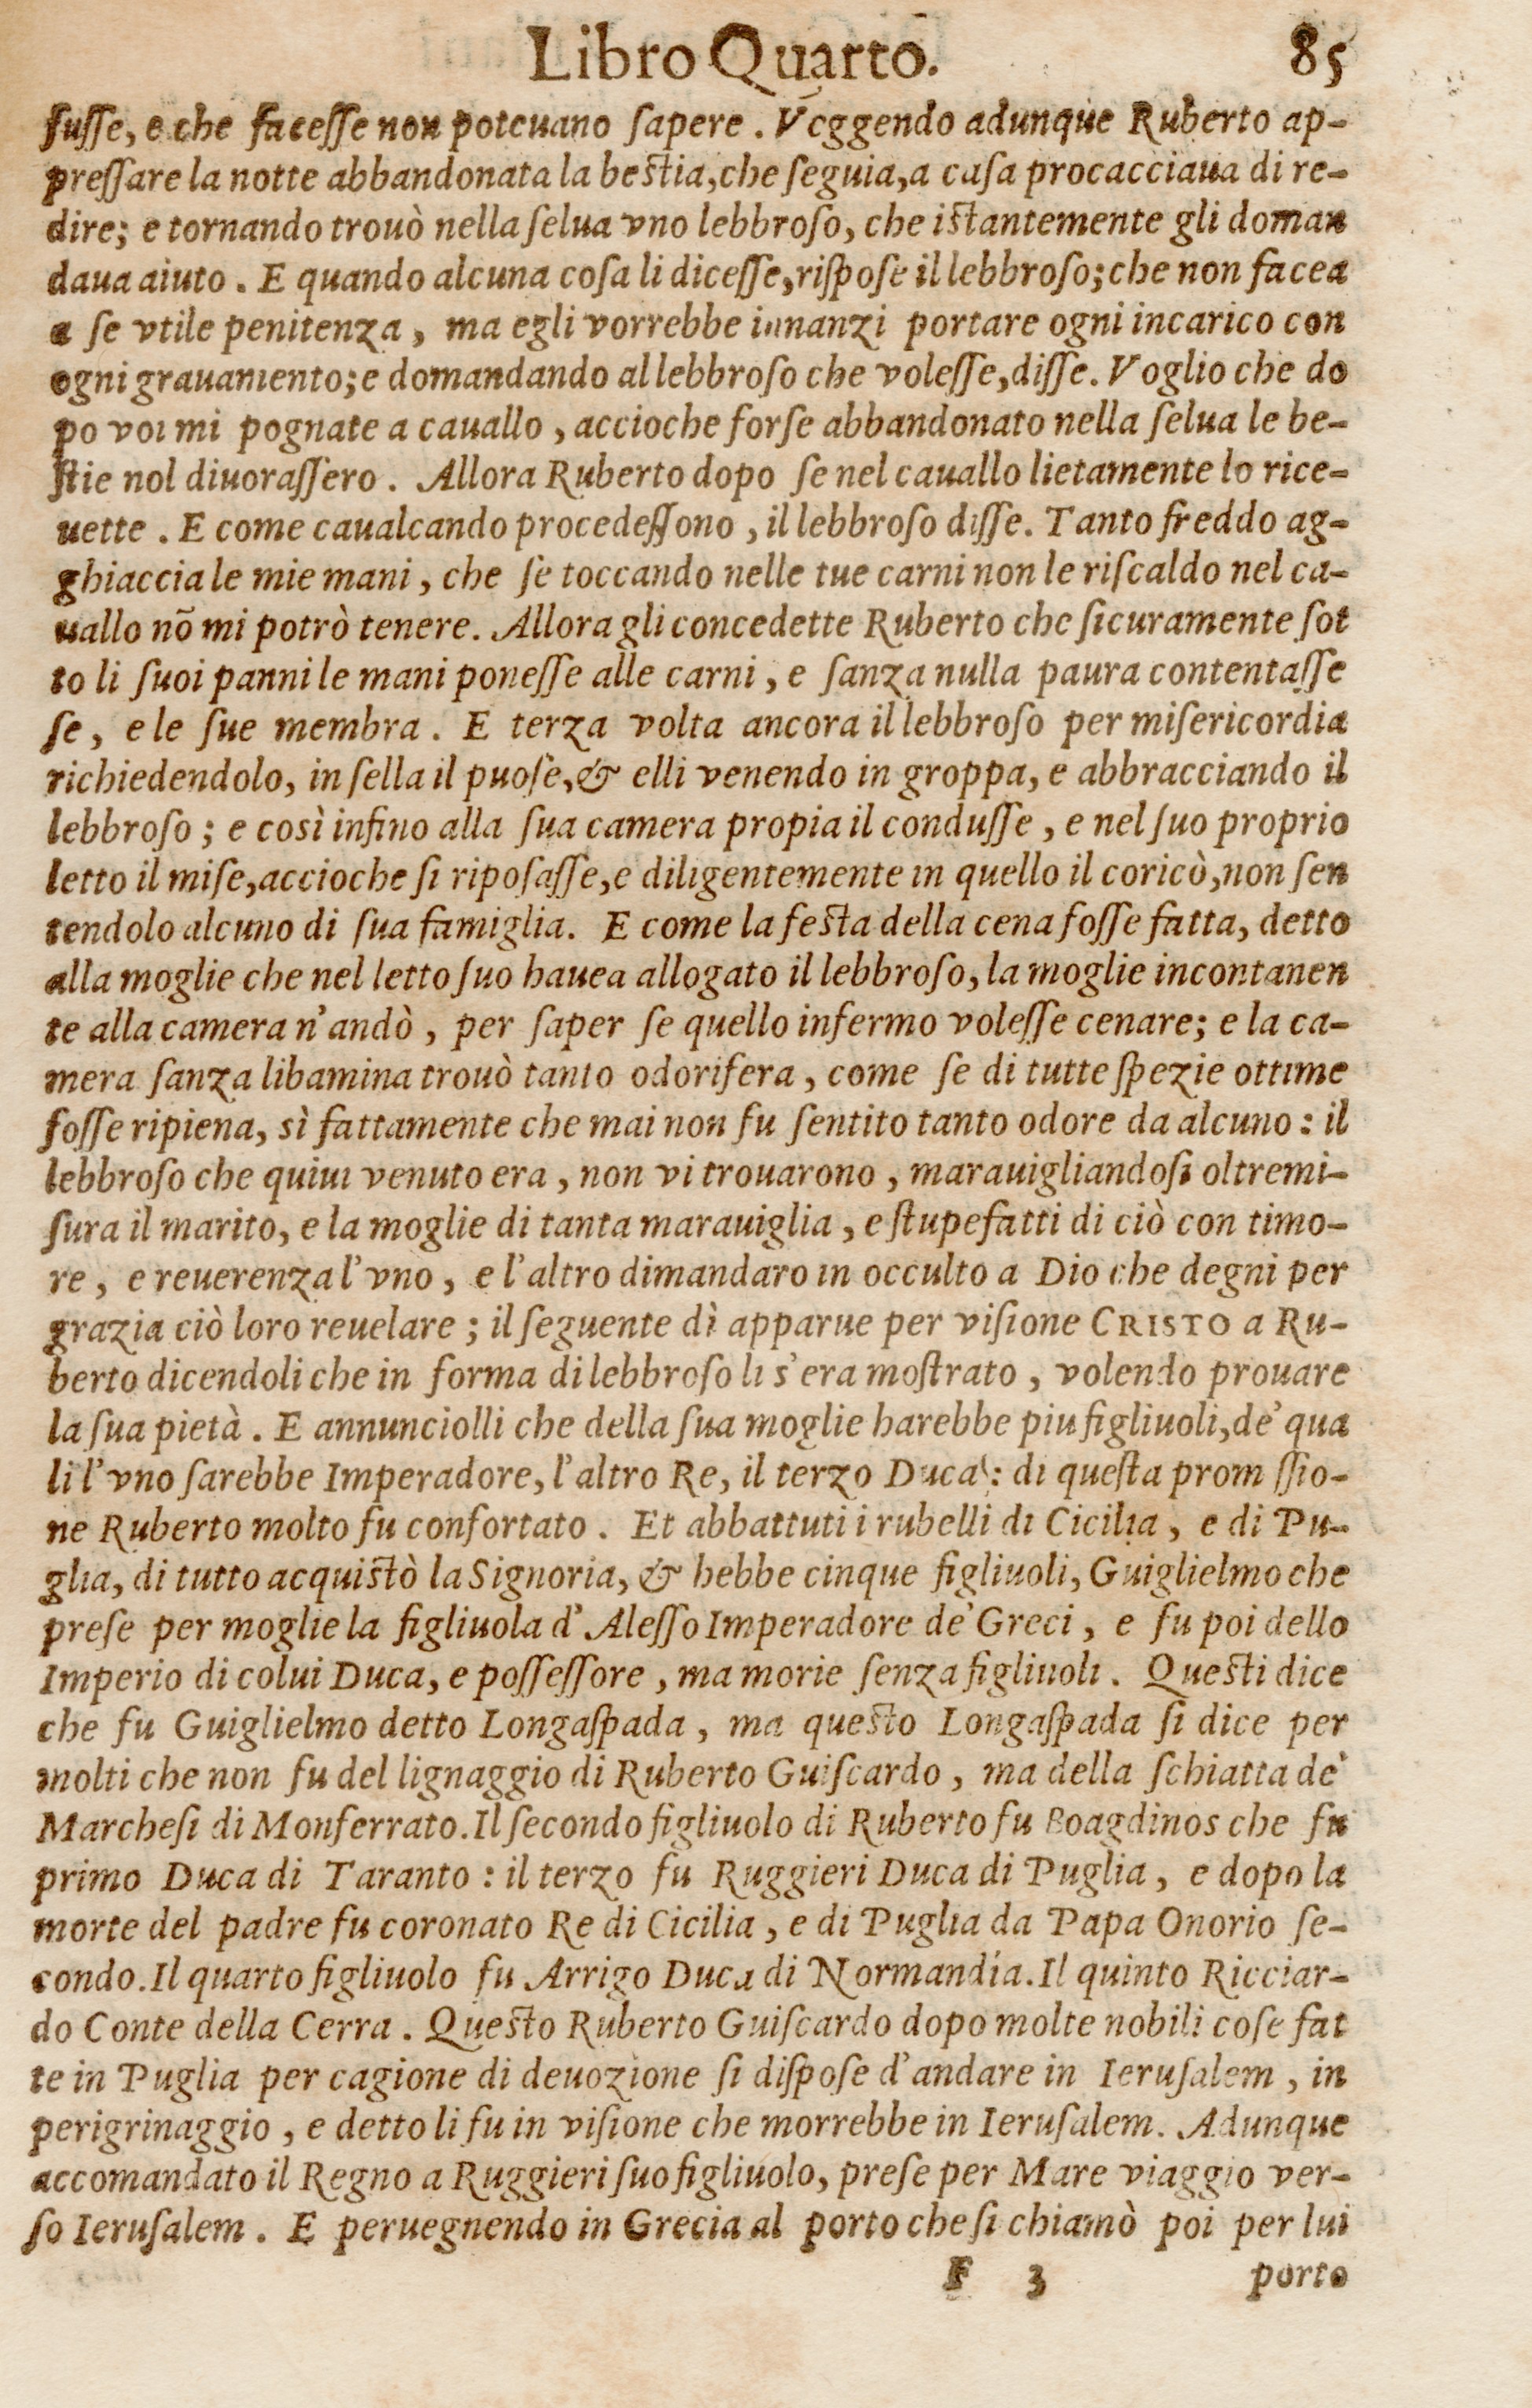 Libro Quarto. 85
fuſſe, e che faceſſe non poteuano ſapere. Veggendo adunque Ruberto ap-
preſſare la notte abbandonata la beſtia, che ſeguia, a caſa procacciaua di re-
dire; e tornando trouò nella ſelua vno lebbroso, che iſtantemente gli doman
daua aiuto. E quando alcuna coſa li diceſſe, riſpoſe il lebbroſo; che non facea
a ſe vtile penitenza, ma egli vorrebbe innanzi portare ogni incarico con
ogni grauamento; e domandando al lebbroſo che voleſſe, diſſe. Voglio che do
po voi mi pognate a cauallo, accioche forſe abbandonato nella ſelua le be-
ſtie nol diuoraſſero. Allora Ruberto dopo ſe nel cauallo lietamente lo rice-
uette. E come caualcando procedeſſono, il lebbroſo diſſe. Tanto freddo ag-
ghiaccia le mie mani, che ſe toccando nelle tue carni non le riſcaldo nel ca-
uallo nõ mi potrò tenere. Allora gli concedette Ruberto che ſicuramente ſot
to li ſuoi panni le mani poneſſe alle carni, e ſanza nulla paura contentaſſe
ſe, e le ſue membra. E terza volta ancora il lebbroſo per miſericordia
richiedendolo, in ſella il puoſe, & elli venendo in groppa, e abbracciando il
lebbroſo; e così infino alla ſua camera propia il conduſſe, e nel ſuo proprio
letto il miſe, accioche ſi ripoſaſſe, e diligentemente in quello il coricò, non ſen
tendolo alcuno di ſua famiglia. E come la feſta della cena foſſe fatta, detto
alla moglie che nel letto ſuo hauea allogato il lebbroſo, la moglie incontanen
te alla camera n'andò, per ſaper ſe quello infermo voleſſe cenare; e la ca-
mera ſanza libamina trouò tanto odorifera, come ſe di tutte ſpezie ottime
foſſe ripiena, sì fattamente che mai non fu ſentito tanto odore da alcuno: il
lebbroſo che quiui venuto era, non vi trouarono, marauigliandoſi oltremi-
ſura il marito, e la moglie di tanta marauiglia, e ſtupefatti di ciò con timo-
re, e reuerenza l'vno, e l'altro dimandaro in occulto a Dio che degni per
grazia ciò loro reuelare; il ſeguente dì apparue per viſione CRISTO a Ru-
berto dicendoli che in forma di lebbroſo li s'era moſtrato, volendo prouare
la ſua pietà. E annunciolli che della ſua moglie harebbe piu figliuoli, de' qua
li l'vno ſarebbe Imperadore, l'altro Re, il terzo Duca: di queſta prom ſſio-
ne Ruberto molto fu confortato. Et abbattuti i rubelli di Cicilia, e di Pu-
glia, di tutto acquiſtò la Signoria, & hebbe cinque figliuoli, Guiglielmo che
preſe per moglie la figliuola d'Aleſſo Imperadore de' Greci, e fu poi dello
Imperio di colui Duca, e poſſeſſore, ma morie ſenza figliuoli. Queſti dice
che fu Guiglielmo detto Longaſpada, ma queſto Longaſpada ſi dice per
molti che non fu del lignaggio di Ruberto Guiſcardo, ma della ſchiatta de'
Marcheſi di Monferrato. Il ſecondo figliuolo di Ruberto fu Boagdinos che fu
primo Duca di Taranto: il terzo fu Ruggieri Duca di Puglia, e dopo la
morte del padre fu coronato Re di Cicilia, e di Puglia da Papa Onorio ſe-
condo. Il quarto figliuolo fu Arrigo Duca di Normandía. Il quinto Ricciar-
do Conte della Cerra. Queſto Ruberto Guiſcardo dopo molte nobili coſe fat
te in Puglia per cagione di deuozione ſi diſpoſe d'andare in Ieruſalem, in
perigrinaggio, e detto li fu in viſione che morrebbe in Ieruſalem. Adunque
accomandato il Regno a Ruggieri ſuo figliuolo, preſe per Mare viaggio ver-
ſo Ieruſalem. E peruegnendo in Grecia al porto che ſi chiamò poi per lui
F 3 porto